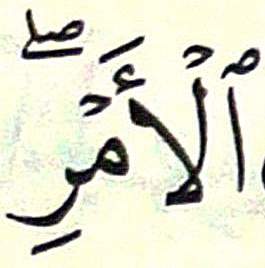 ٱلۡأَمۡرِۖ